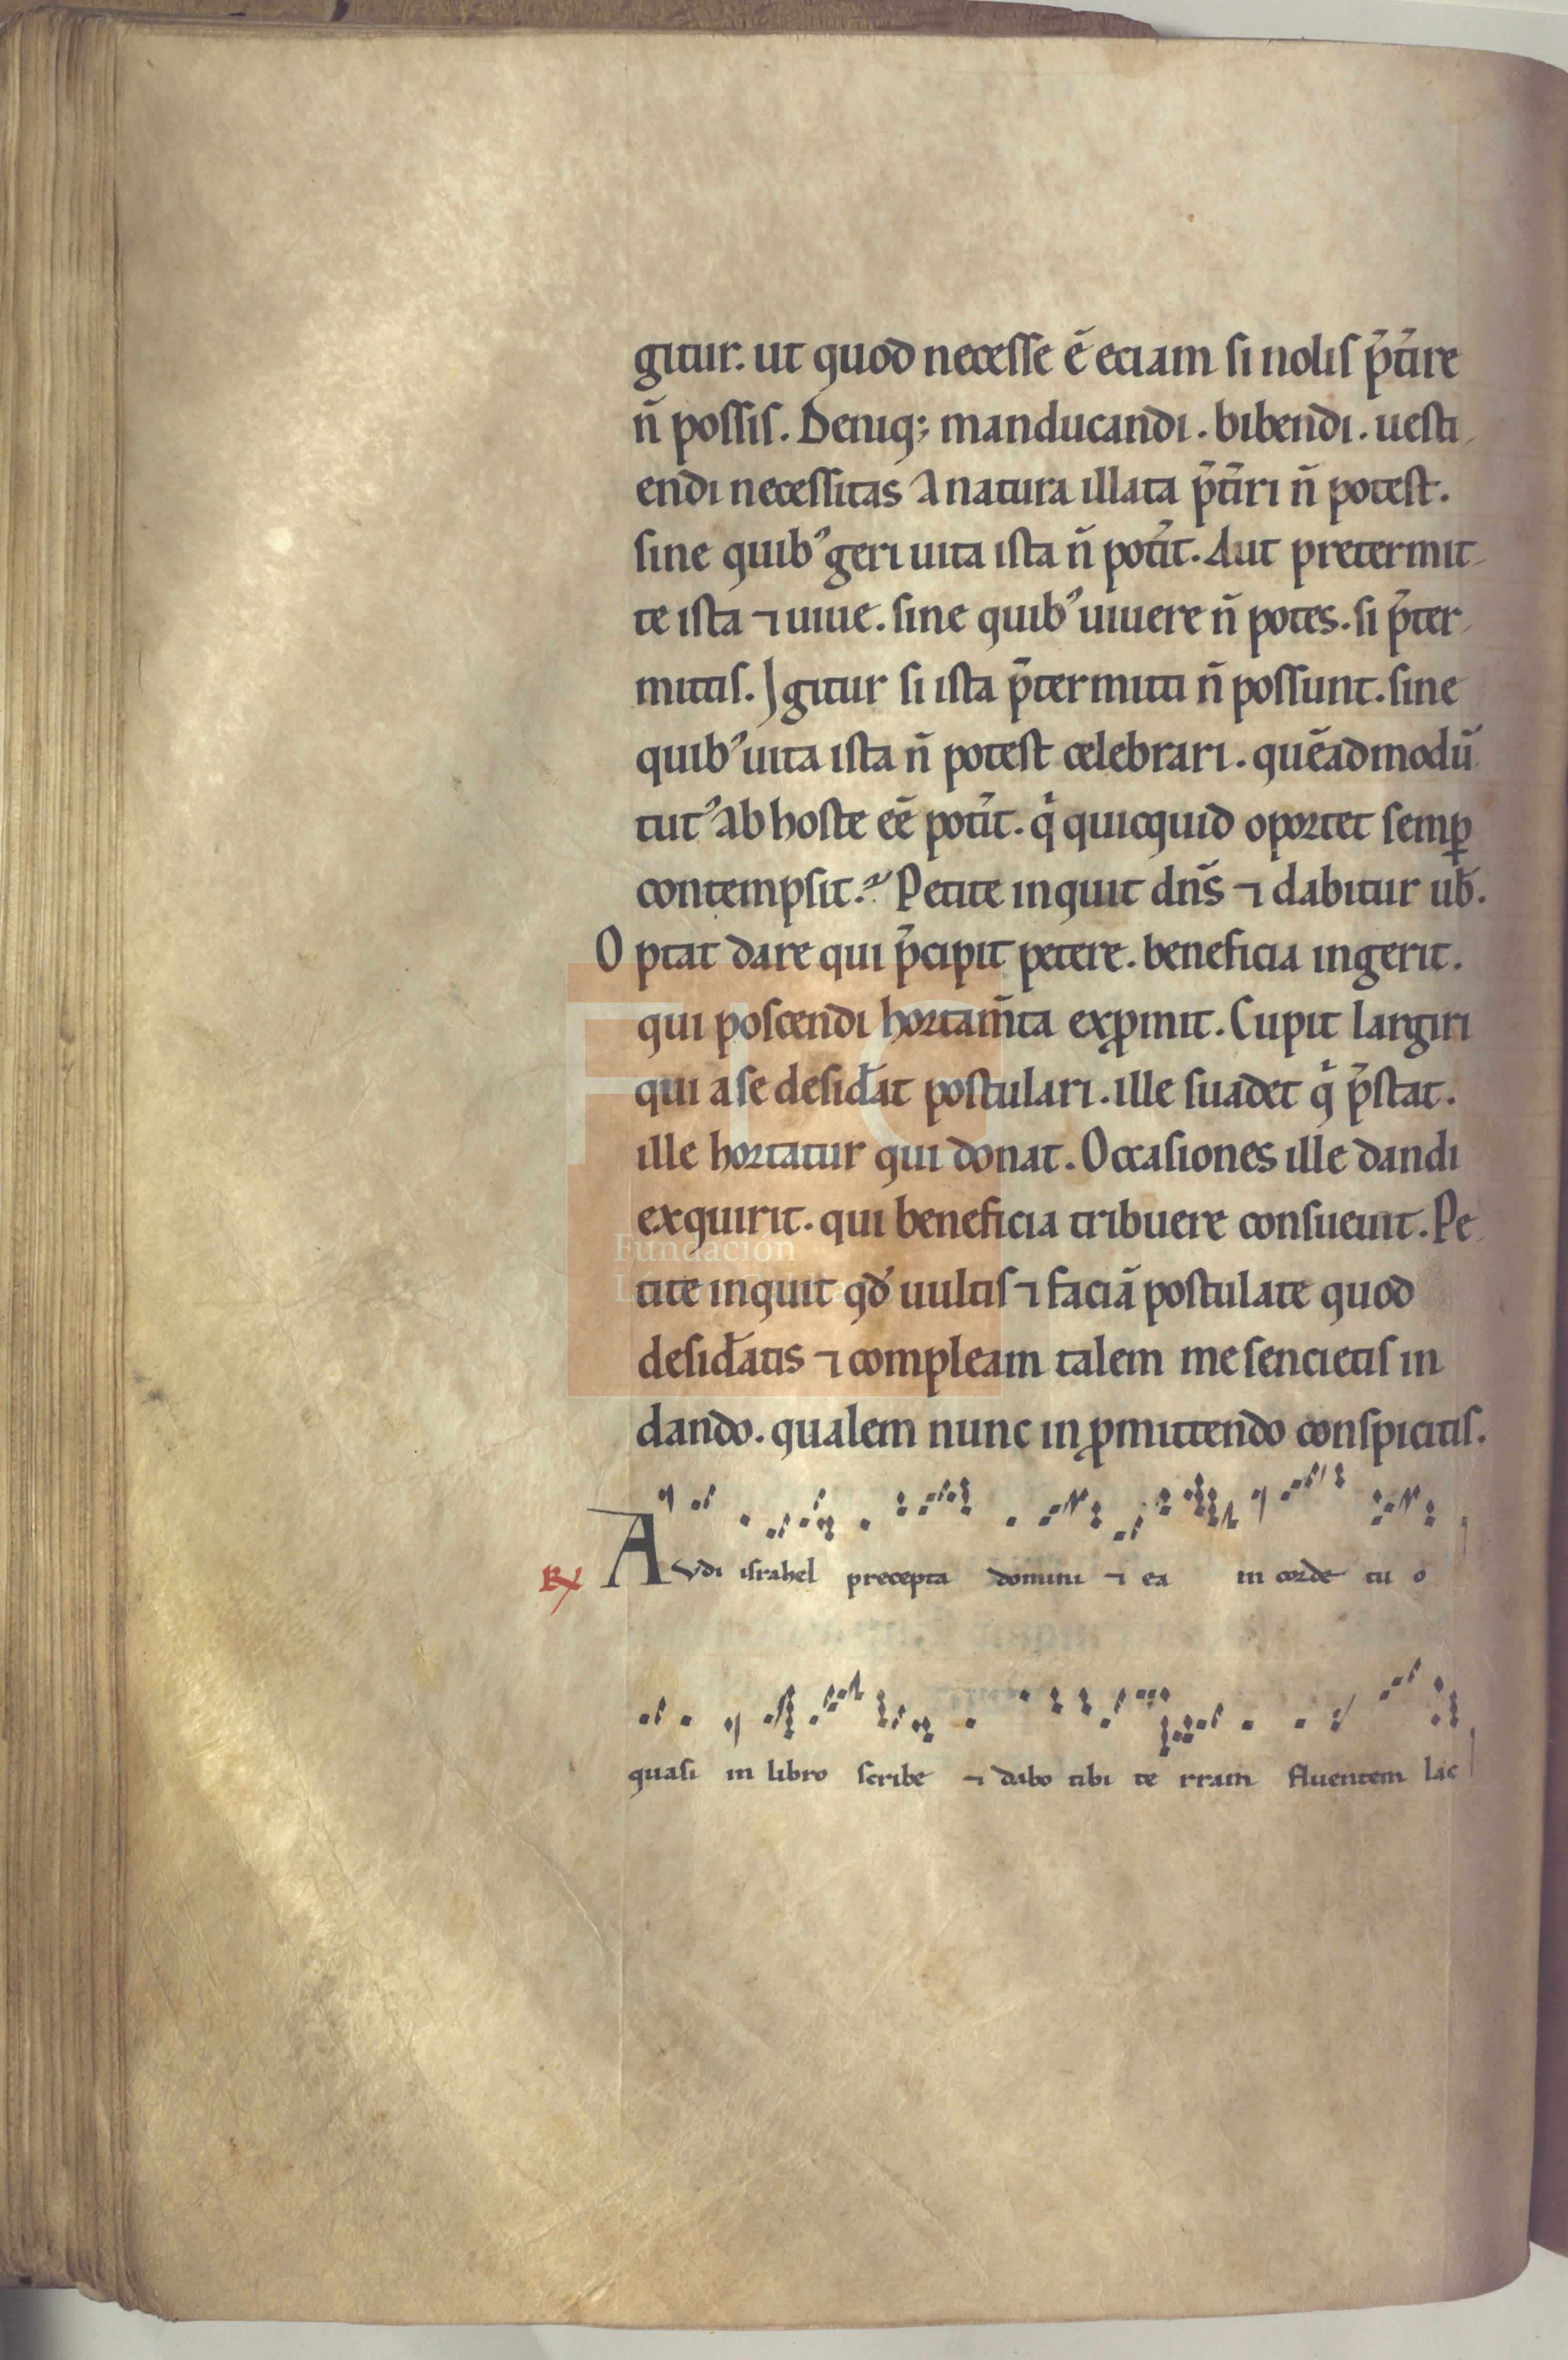 gitur. ut quod necesse ē eciam si nolis p̄t̄ire
n̄ possis. Deniq; manducandi. bibendi. uesti
endi necessitas a natura illata p̄t̄iri n̄ potest.
sine quibꝰ geri uita ista n̄ pot̄it. Aut pretermit
te ista ⁊ uiue. sine quibꝰ uiuere n̄ potes. si p̄ter
mittis. Igitur si ista p̄termitti n̄ possunt. sine
quibꝰ uita ista n̄ potest celebrari. quēadmodū
tutꝰ ab hoste eē pot̄it. qͥ quicquid oportet semꝑ
contempsit. Petite inquit dn̄s ⁊ dabitur ub̄.
Optat dare qui p̄cipit petere. beneficia ingerit.
qui poscendi hortam̄ta exꝓmit. Cupit largiri
qui a se desid̄at postulari. ille suadet qͥ p̄stat.
ille hortatur qui donat. Occasiones ille dandi
exquirit. qui beneficia tribuere consueuit. Pe
tite inquit qd̄ uultis ⁊ faciā postulate quod
desid̄atis ⁊ compleam talem me sencietis in
dando. qualem nunc in ꝓmittendo conspicitis.
℟ Audi israhel precepta domini ⁊ ea in corde tu o
quasi in libro scribe ⁊ dabo tibi te rram fluentem lac
Fundación